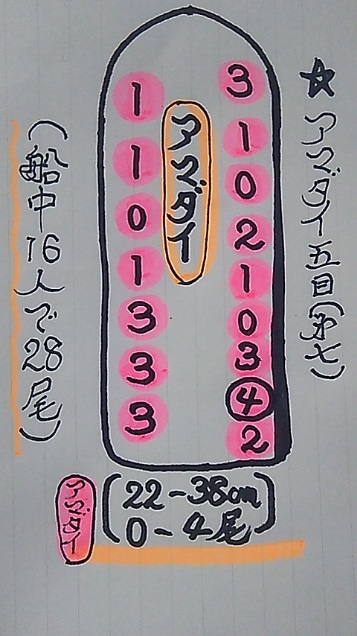 ☆ アマダイ五目(第七)
アマダイ
3
1
0
2
1
0
3
4
2
1
1
0
1
3
3
3
(船中16人で28尾)
アマダイ
22-38cm
0-4尾